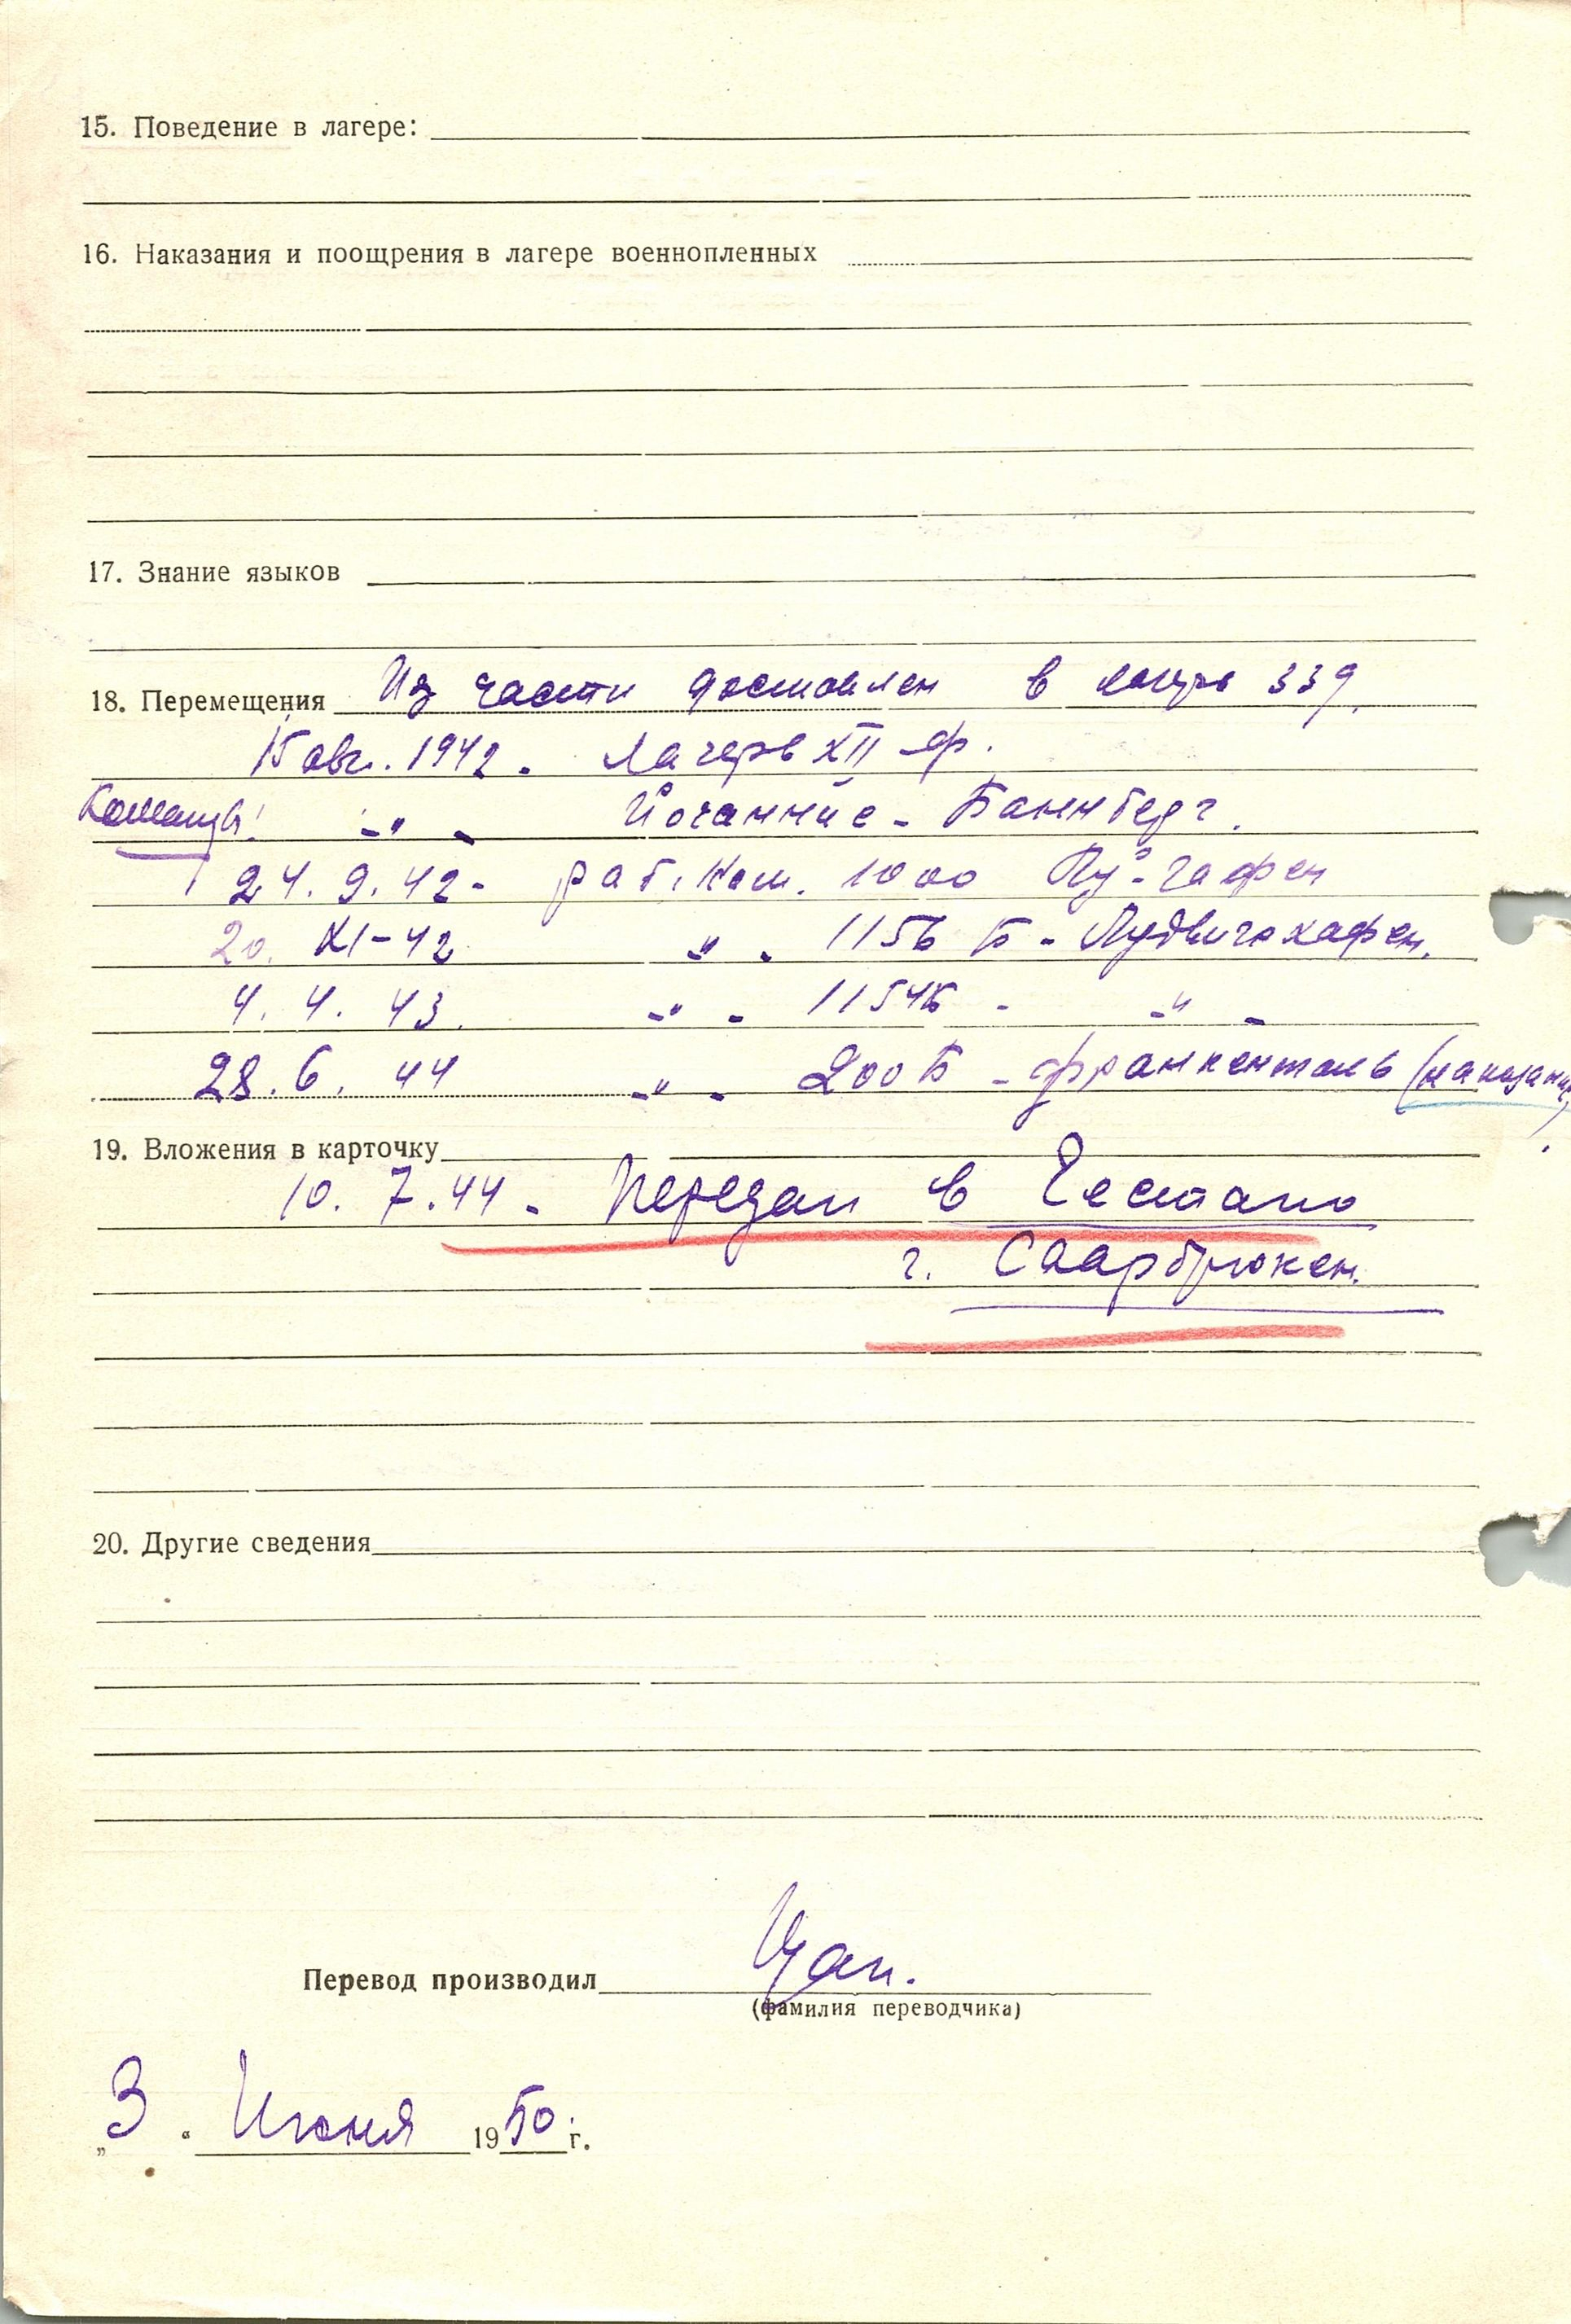 15. Поведение в лагере:
16. Наказания и поощрения в лагере военнопленных
17. Знание языков
18. Перемещения Из части доставлен в лагерь 339.
15 авг. 1942. Лагерь XII ф.
Команды: -"- Йоганнис - Баннберг.
24.9.42 - раб. ком. 1000 Лу-гафен
20. XI-42 " - 1156 Б - Лудвигсхафен.
4. 4. 43. -"- 1154Б - -"-
28. 6. 44 -"- 200Б - Франкенталь (наказание)
19. Вложения в карточку
10. 7.44 - Передан в Гестапо
г. Саарбрюкен.
20. Другие сведения
Перевод производил
(фамилия переводчика)
„3“ Июня 1950 г.